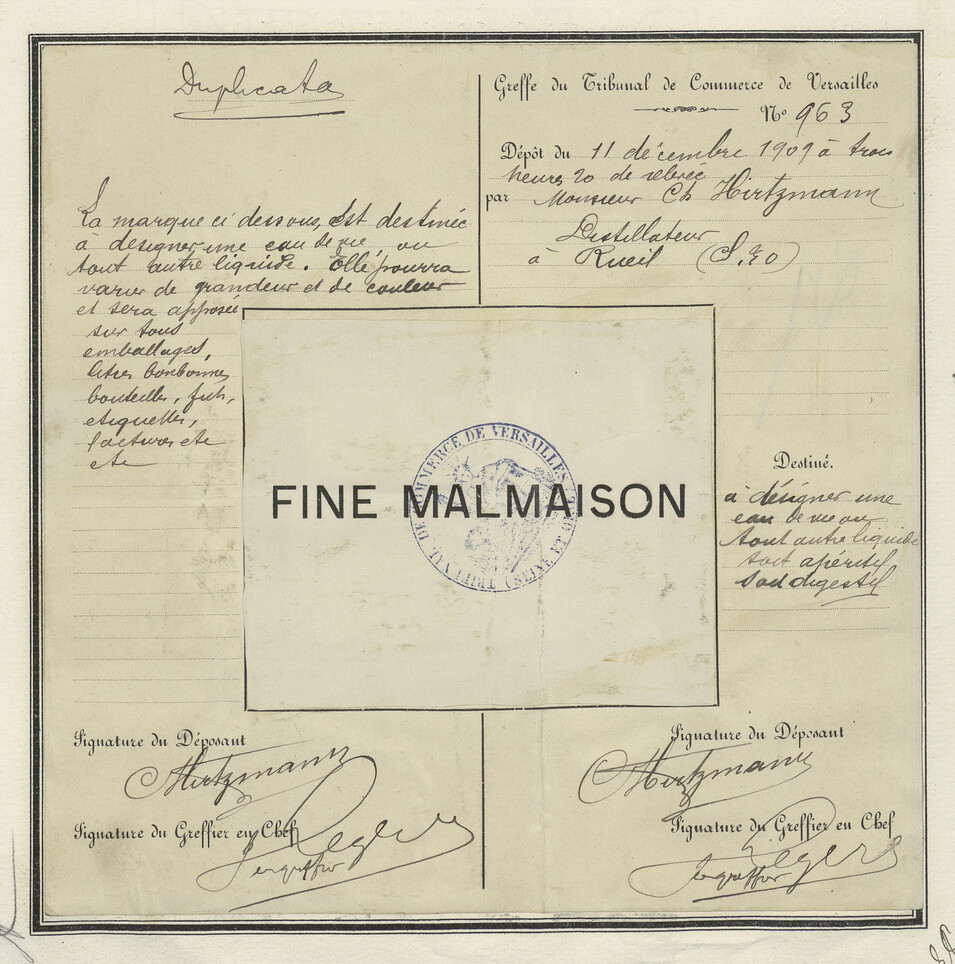 Duplicata
La marque ci dessous, est destinée
à désigner une eau de vie, ou
tout autre liquide. Elle pourra
varier de grandeur et de couleur
et sera apposée
sur tous
emballages,
litres bonbonnes
bouteilles, fûts,
etiquettes,
factures etc
etc
Greffe du Tribunal de Commerce de Versailles
N° 963
Dépôt du 11 décembre 1909 à trois
heures 20 de relevée
par Monsieur Ch Hirtzmann
Distillateur
à Rueil (S. & O)
FINE MALMAISON
TRIBUNAL DE COMMERCE DE VERSAILLES (SEINE ET OISE)
Destiné.
à désigner une
eau de vie ou
tout autre liquide
soit apéritif
soit digestif
Signature du Déposant
Hirtzmann
Signature du Greffier en Chef
Signature du Déposant
Hirtzmann
Signature du Greffier en Chef